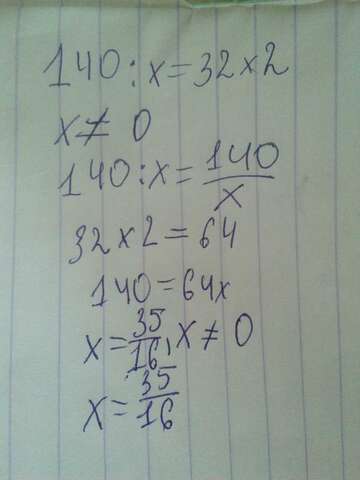 140:x=32x2
x≠0
140:x=140/x
32x2=64
140=64x
x=35/16, x≠0
x=35/16